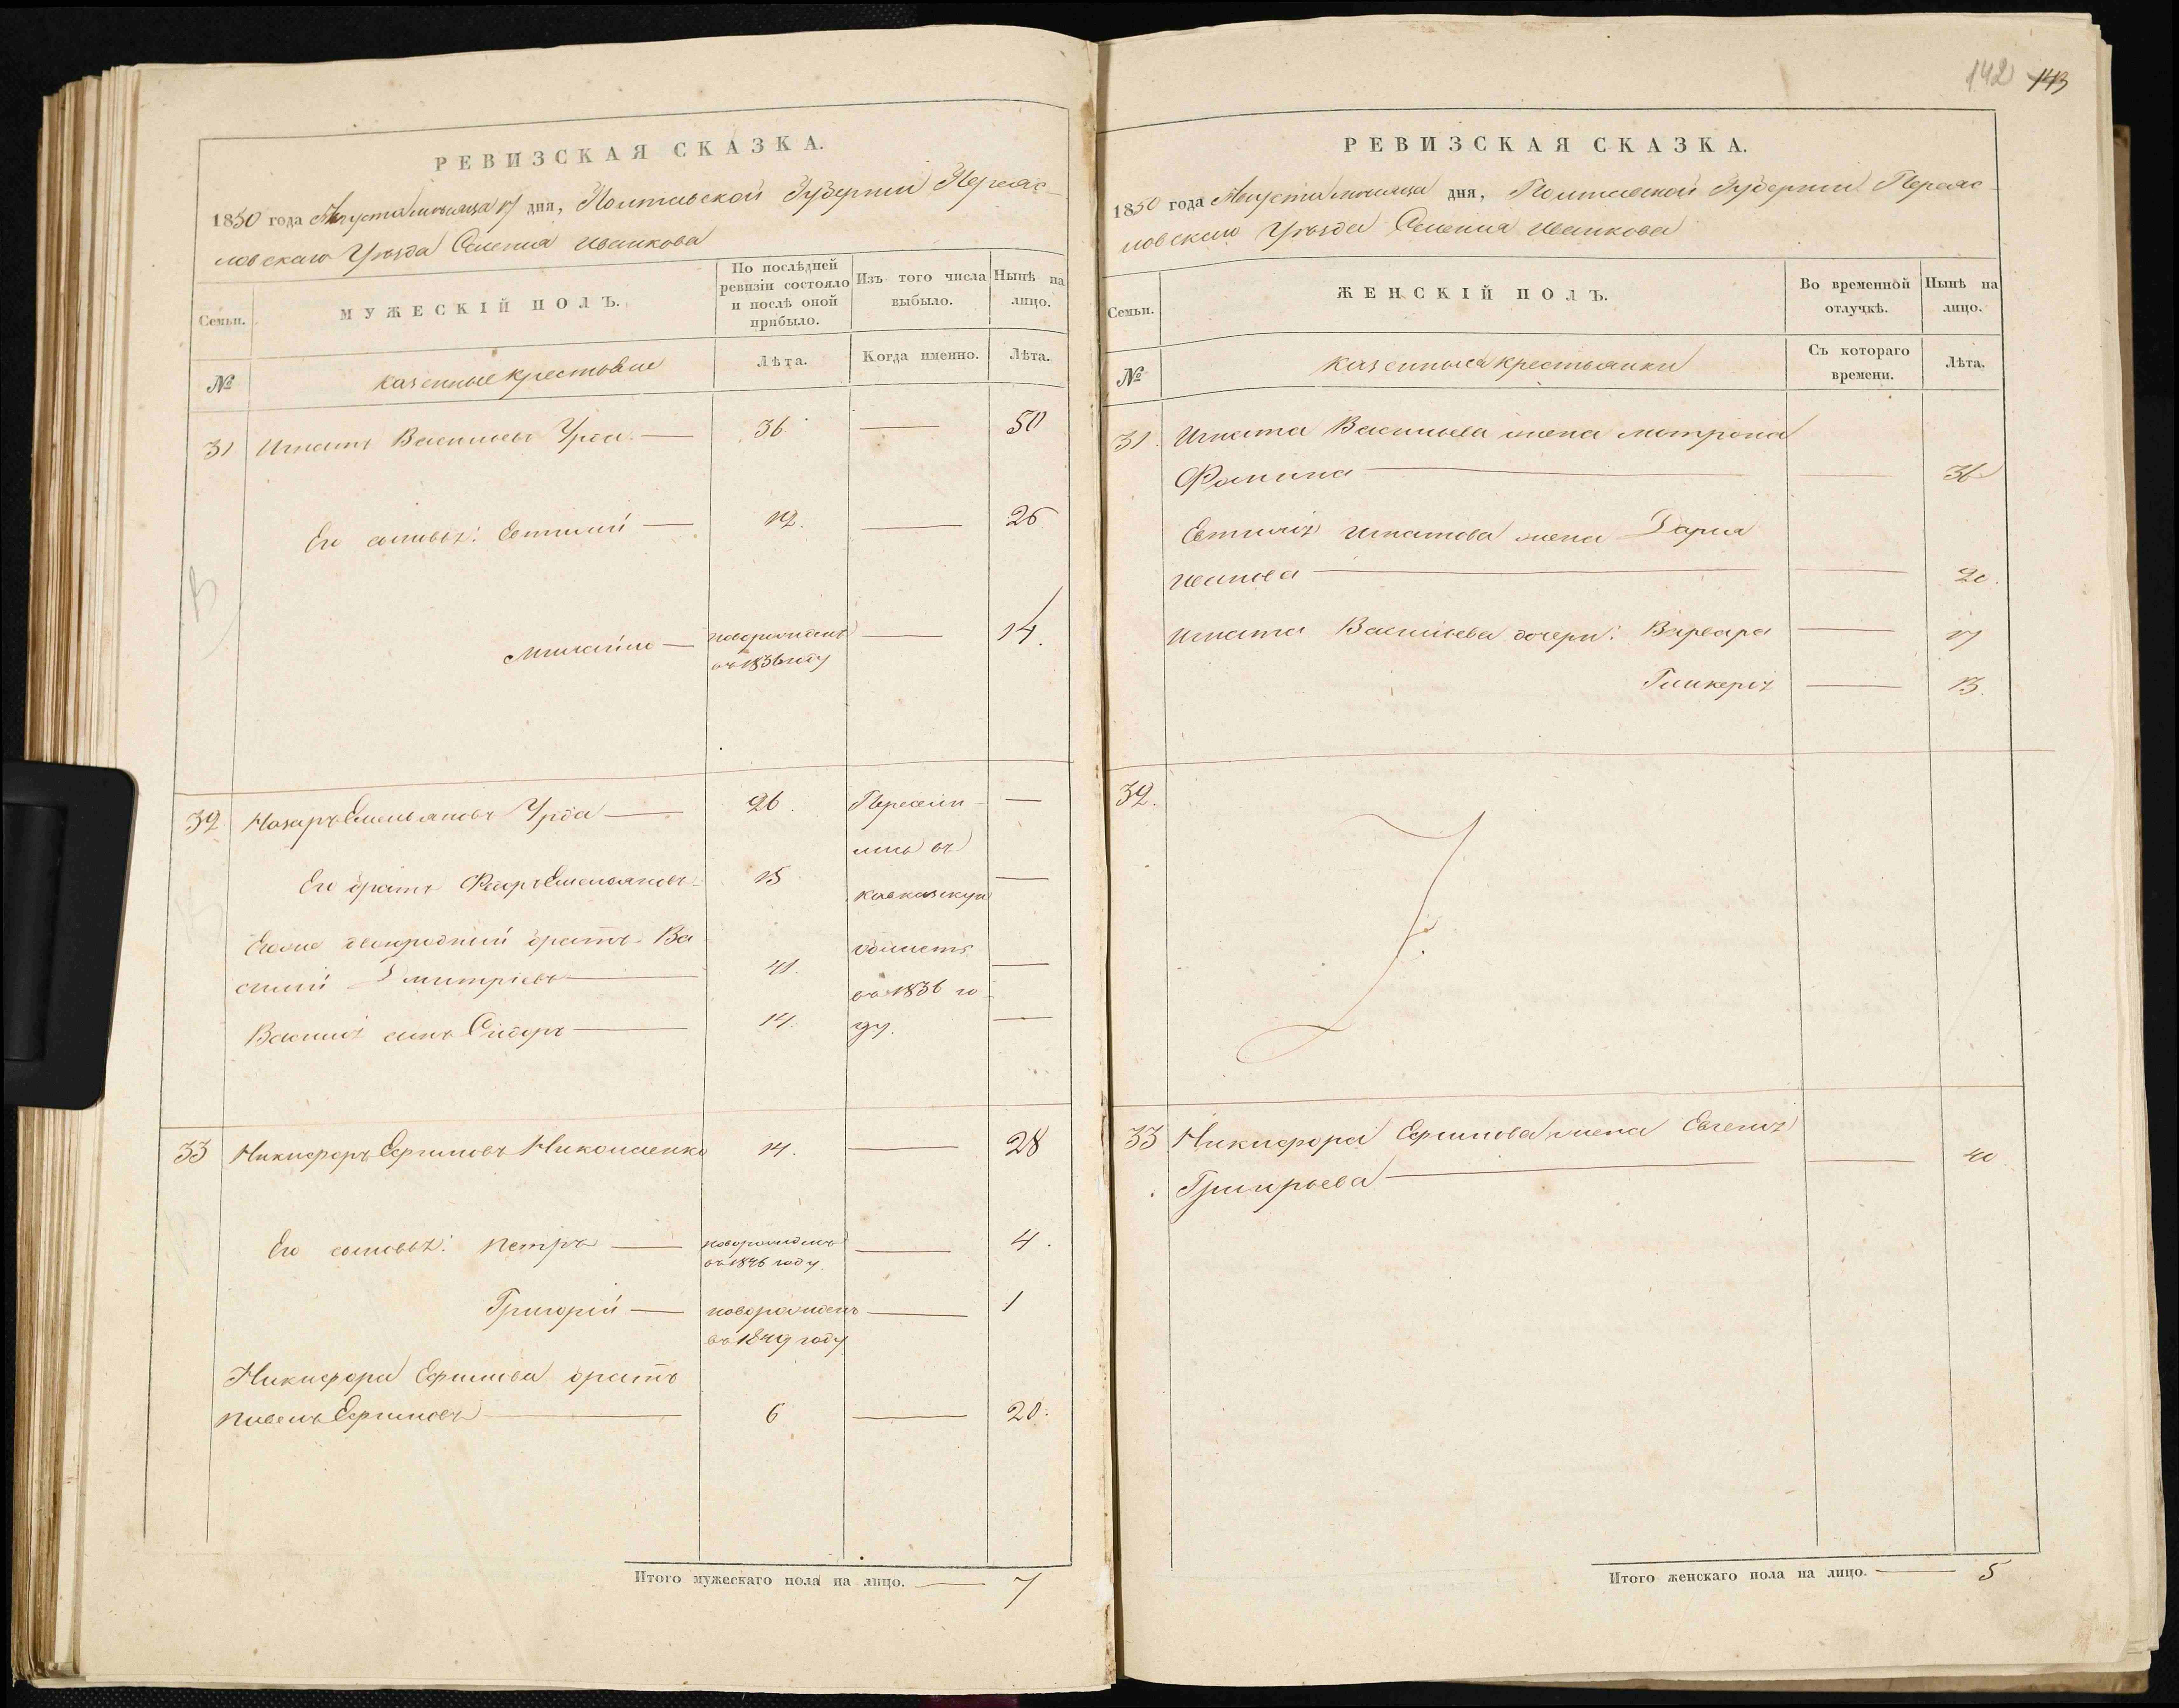 142 143
РЕВИЗСКАЯ СКАЗКА.
1850 года Августа месяца 17 дня, Полтавской Губернии Переяс-
ловскаго Уезда Селения Иванкова
Семьи.
МУЖЕСКІЙ ПОЛЪ.
По послѣдней ревизіи состояло и послѣ оной прибыло.
Изъ того числа выбыло.
Нынѣ на лицо.
№
казенные крестьяне
Лѣта.
Когда именно.
Лѣта.
31 Игнатъ Васильевъ Урда 36 50
Его сыновья: Евтихий 12. 26
Михайло новорожденъ 14.
въ 1836 году
32 Назаръ Емельяновъ Урда 26. Пересели-
лись въ
Его братъ Федоръ Емельяновъ 15.
Кавказкую
Его же двоюродный братъ Ва область
силий Дмитріевъ 41.
въ 1836 го-
Василия сынъ Сидоръ 14. ду.
33 Никифоръ Ефимовъ Николаенко 14. 28
Его сыновья: Петръ новорожденъ 4.
въ 1846 году.
Григорій новорожденъ 1
въ 1849 году
Никифора Ефимова братъ
Павелъ Ефимовъ 6 20.
Итого мужескаго пола на лицо. 7
РЕВИЗСКАЯ СКАЗКА.
1850 года Августа месяца дня, Полтавской Губернии Переяс-
ловскаго Уезда Селения Иванкова
Семьи.
ЖЕНСКІЙ ПОЛЪ.
Во временной отлучкѣ.
Нынѣ на лицо.
№
казенныя крестьянки
Съ котораго времени.
Лѣта.
31. Игната Васильева жена Мотрона
Фомина 36
Евтихия Игнатова жена Дарья
Иванова 20.
Игната Васильева дочери: Варвара 17
Гликерия 13.
32.
33 Никифора Ефимова жена Евгения
Григорьева 40
Итого женскаго пола на лицо. 5